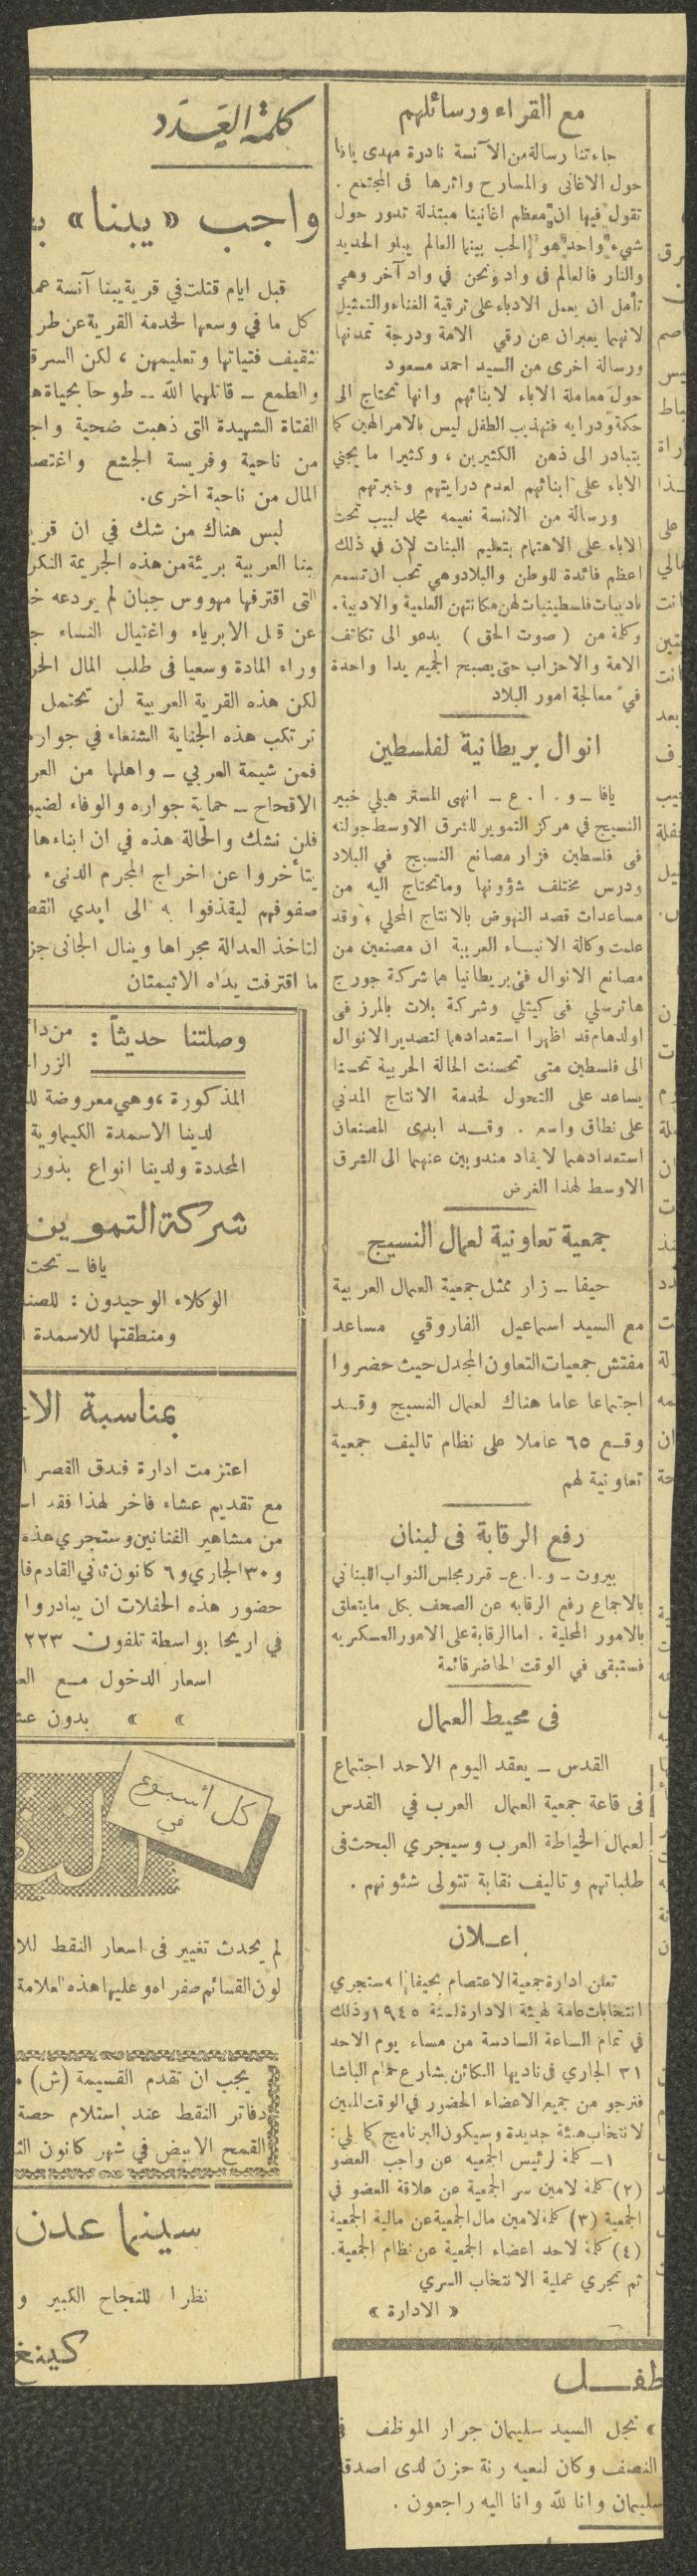 مع القراء ورسائلهم
جاءتنا رسالة من الآنسة نادرة مهدى يافا
حول الاغانى والمسارح واثرها فى المجتمع .
تقول فيها ان معظم اغانينا مبتذلة تدور حول
شيء واحد هو الحب بينما العالم يبلو الحديد
والنار فالعالم فى واد ونحن في واد آخر وهي
تأمل ان يعمل الادباء على ترقية الغناء والتمثيل
لانهما يعبران عن رقي الامة ودرجة تمدنها
ورسالة اخرى من السيد احمد مسعود
حول معاملة الاباء لابنائهم وانها تحتاج الى
حكمة ودرايه فتهذيب الطفل ليس بالامر الهين كما
يتبادر الى ذهن الكثيرين ، وكثيرا ما يجني
الاباء على ابنائهم لعدم درايتهم وخبرتهم
ورسالة من الانسة نعيمه محمد لبيب تحث
الاباء على الاهتمام بتعليم البنات لان في ذلك
اعظم فائدة للوطن والبلاد وهي تحب ان تسمع
باديبات فلسطينيات لهن مكانتهن العلمية والادبية .
وكلمة من ( صوت الحق ) يدعو الى تكاتف
الامة والاحزاب حتى يصبح الجميع يدا واحدة
في معالجة امور البلاد
انوال بريطانية لفلسطين
يافا – و . ا . ع – انهى المستر هيلي خبير
النسيج في مركز التموير للشرق الاوسط جولته
فى فلسطين فزار مصانع النسيج في البلاد
ودرس مختلف شؤونها وماتحتاج اليه من
مساعدات قصد النهوض بالانتاج المحلي ؛ وقد
علمت وكالة الانبــاء العربية ان مصنعين من
مصانع الانوال فى بريطانيا هما شركة جورج
هاترسلي فى كيثلي وشركة بلات بالمرز فى
اولدهام قد اظهرا استعدادهما لتصدير الانوال
الى فلسطين متى تحسنت الحالة الحربية تحسنا
يساعد على التحول لخدمة الانتاج المدني
على نطاق واسع . وقـــد ابدى المصنعان
استعدادهما لايفاد مندوبين عنهما الى الشرق
الاوسط لهذا الغرض
جمعية تعاونية لعمال النسيج
حيفا – زار ممثل جمعية العمال العربية
مع السيد اسماعيل الفاروقي مساعد
مفتش جمعيات التعاون المجدل حيث حضروا
اجتماعا عاما هناك لعمال النسيج وقــد
وقــع ٦٥ عاملا على نظام تاليف جمعية
تعاونية لهم
رفع الرقابة فى لبنان
بيروت – و.ا.ع– قرر مجلس النواب اللبناني
بالاجماع رفع الرقابه عن الصحف بكل مايتعلق
بالامور المحلية . اما الرقابة على الامور العسكريه
فستبقى في الوقت الحاضر قائمة
فى محيط العمال
القدس – يعقد اليوم الاحد اجتماع
فى قاعة جمعية العمال العرب في القدس
لعمال الخياطة العرب وسيجري البحث فى
طلباتهم وتاليف نقابة تتولى شئونهم .
اعــلان
تعلن ادارة جمعية الاعتصام بحيفا انه ستجري
انتخابات عامة لهيئة الادارة لسنة ١٩٤٥ وذلك
في تمام الساعة السادسة من مساء يوم الاحد
٣١ الجاري فى ناديها الكائن بشارع حمام الباشا
فنرجو من جميع الاعضاء الحضور في الوقت المعين
لانتخاب هيئة جديدة وسيكون البرنامج كما يلي :
١– كلمة لرئيس الجمعيه عن واجب العضو
(٢) كلمة لامين سر الجمعية عن علاقة العضو في
الجمعية (٣) كلمة لامين مال الجمعية عن مالية الجمعية
(٤) كلمة لاحد اعضاء الجمعية عن نظام الجمعية .
ثم تجري عملية الانتخاب السري
« الادارة »
طفــــل
» نجل السيد سليمان جرار الموظف
النصف وكان لنعيه رنة حزن لدى اصدقا
سليمان وانا لله وانا اليه راجعون .
كلمة العدد
واجب «يبنا»
قبل ايام قتلت في قرية يبنا آنسة
كل ما في وسعها لخدمة القرية عن طر
تثقيف فتياتها وتعليمهن ، لكن السرق
والطمع – قاتلهما الله -- طوحا بحياة
الفتاة الشهيدة التى ذهبت ضحية
من ناحية وفريسة الجشع واغتصا
المال من ناحية اخرى.
ليس هناك من شك في ان
يبنا العربية بريئة من هذه الجريمة النكر
التى اقترفها مهووس جبان لم يردعه
عن قتل الابرياء واغتيال النساء
وراء المادة وسعيا فى طلب المال
لكن هذه القرية العربية لن تحتمل
ترتكب هذه الجناية الشنعاء في
فمن شيمة العربي – واهلها من
الاقحاح – حماية جواره والوفاء
فلن نشك والحالة هذه في ان ابناءها
يتأخروا عن اخراج المجرم الدنىء
صفوفهم ليقذفوا به الى ايدي
لتاخذ العدالة مجراها وينال الجانى
ما اقترفت يداه الاثيمتان
وصلتنا حديثاً : من
الزرا
المذكورة ، وهي معروضة
لدينا الاسمدة الكيماوية
المحددة ولدينا انواع بذور
شركة التموين
يافا – تحت
الوكلاء الوحيدون :
ومنطقتها للاسمدة
بمناسبة
اعتزمت ادارة فندق القصر
مع تقديم عشاء فاخر لهذا فقد
من مشاهير الفنانين وستجري هذه
و٣٠ الجاري و٦ كانون ثاني القادم
حضور هذه الحفلات ان يبادروا
في اريحا بواسطة تلفون ٢٢٣
اسعار الدخول مــع
» » بدون
كل أسبوع
في
لم يحدث تغيير فى اسعار النفط
لون القسائم صفراء وعليها هذه العلامة
يجب ان تقدم القسيمة (ش)
دفاتر النفط عند استلام حصة
القمح الابيض في شهر كانون
سينما عدن
نظرا للنجاح الكبير
كينغ